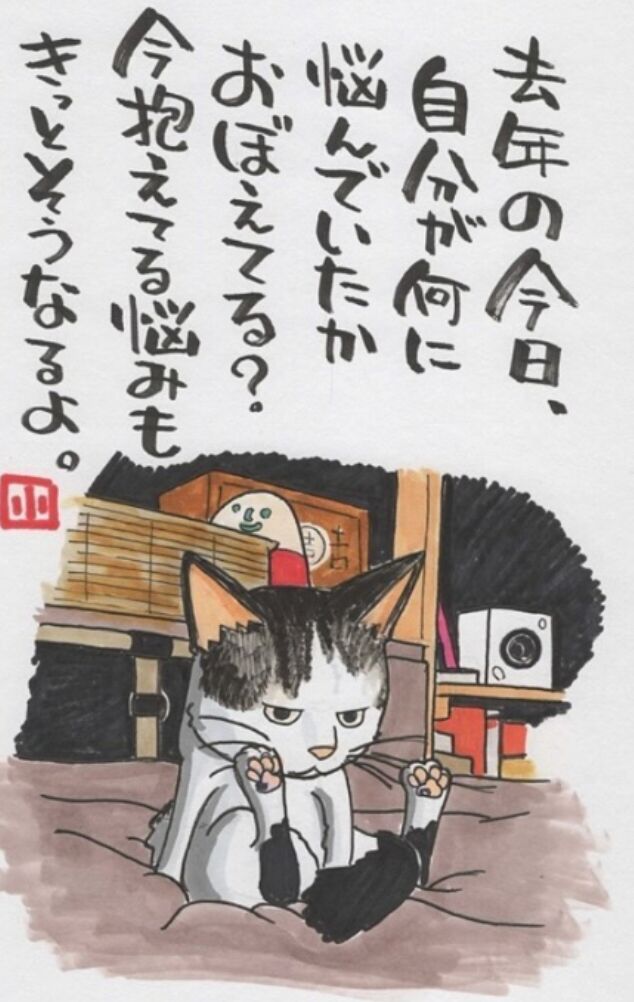 去年の今日、
自分が何に
悩んでいたか
おぼえてる？
今抱えてる悩みも
きっとそうなるよ。
吉